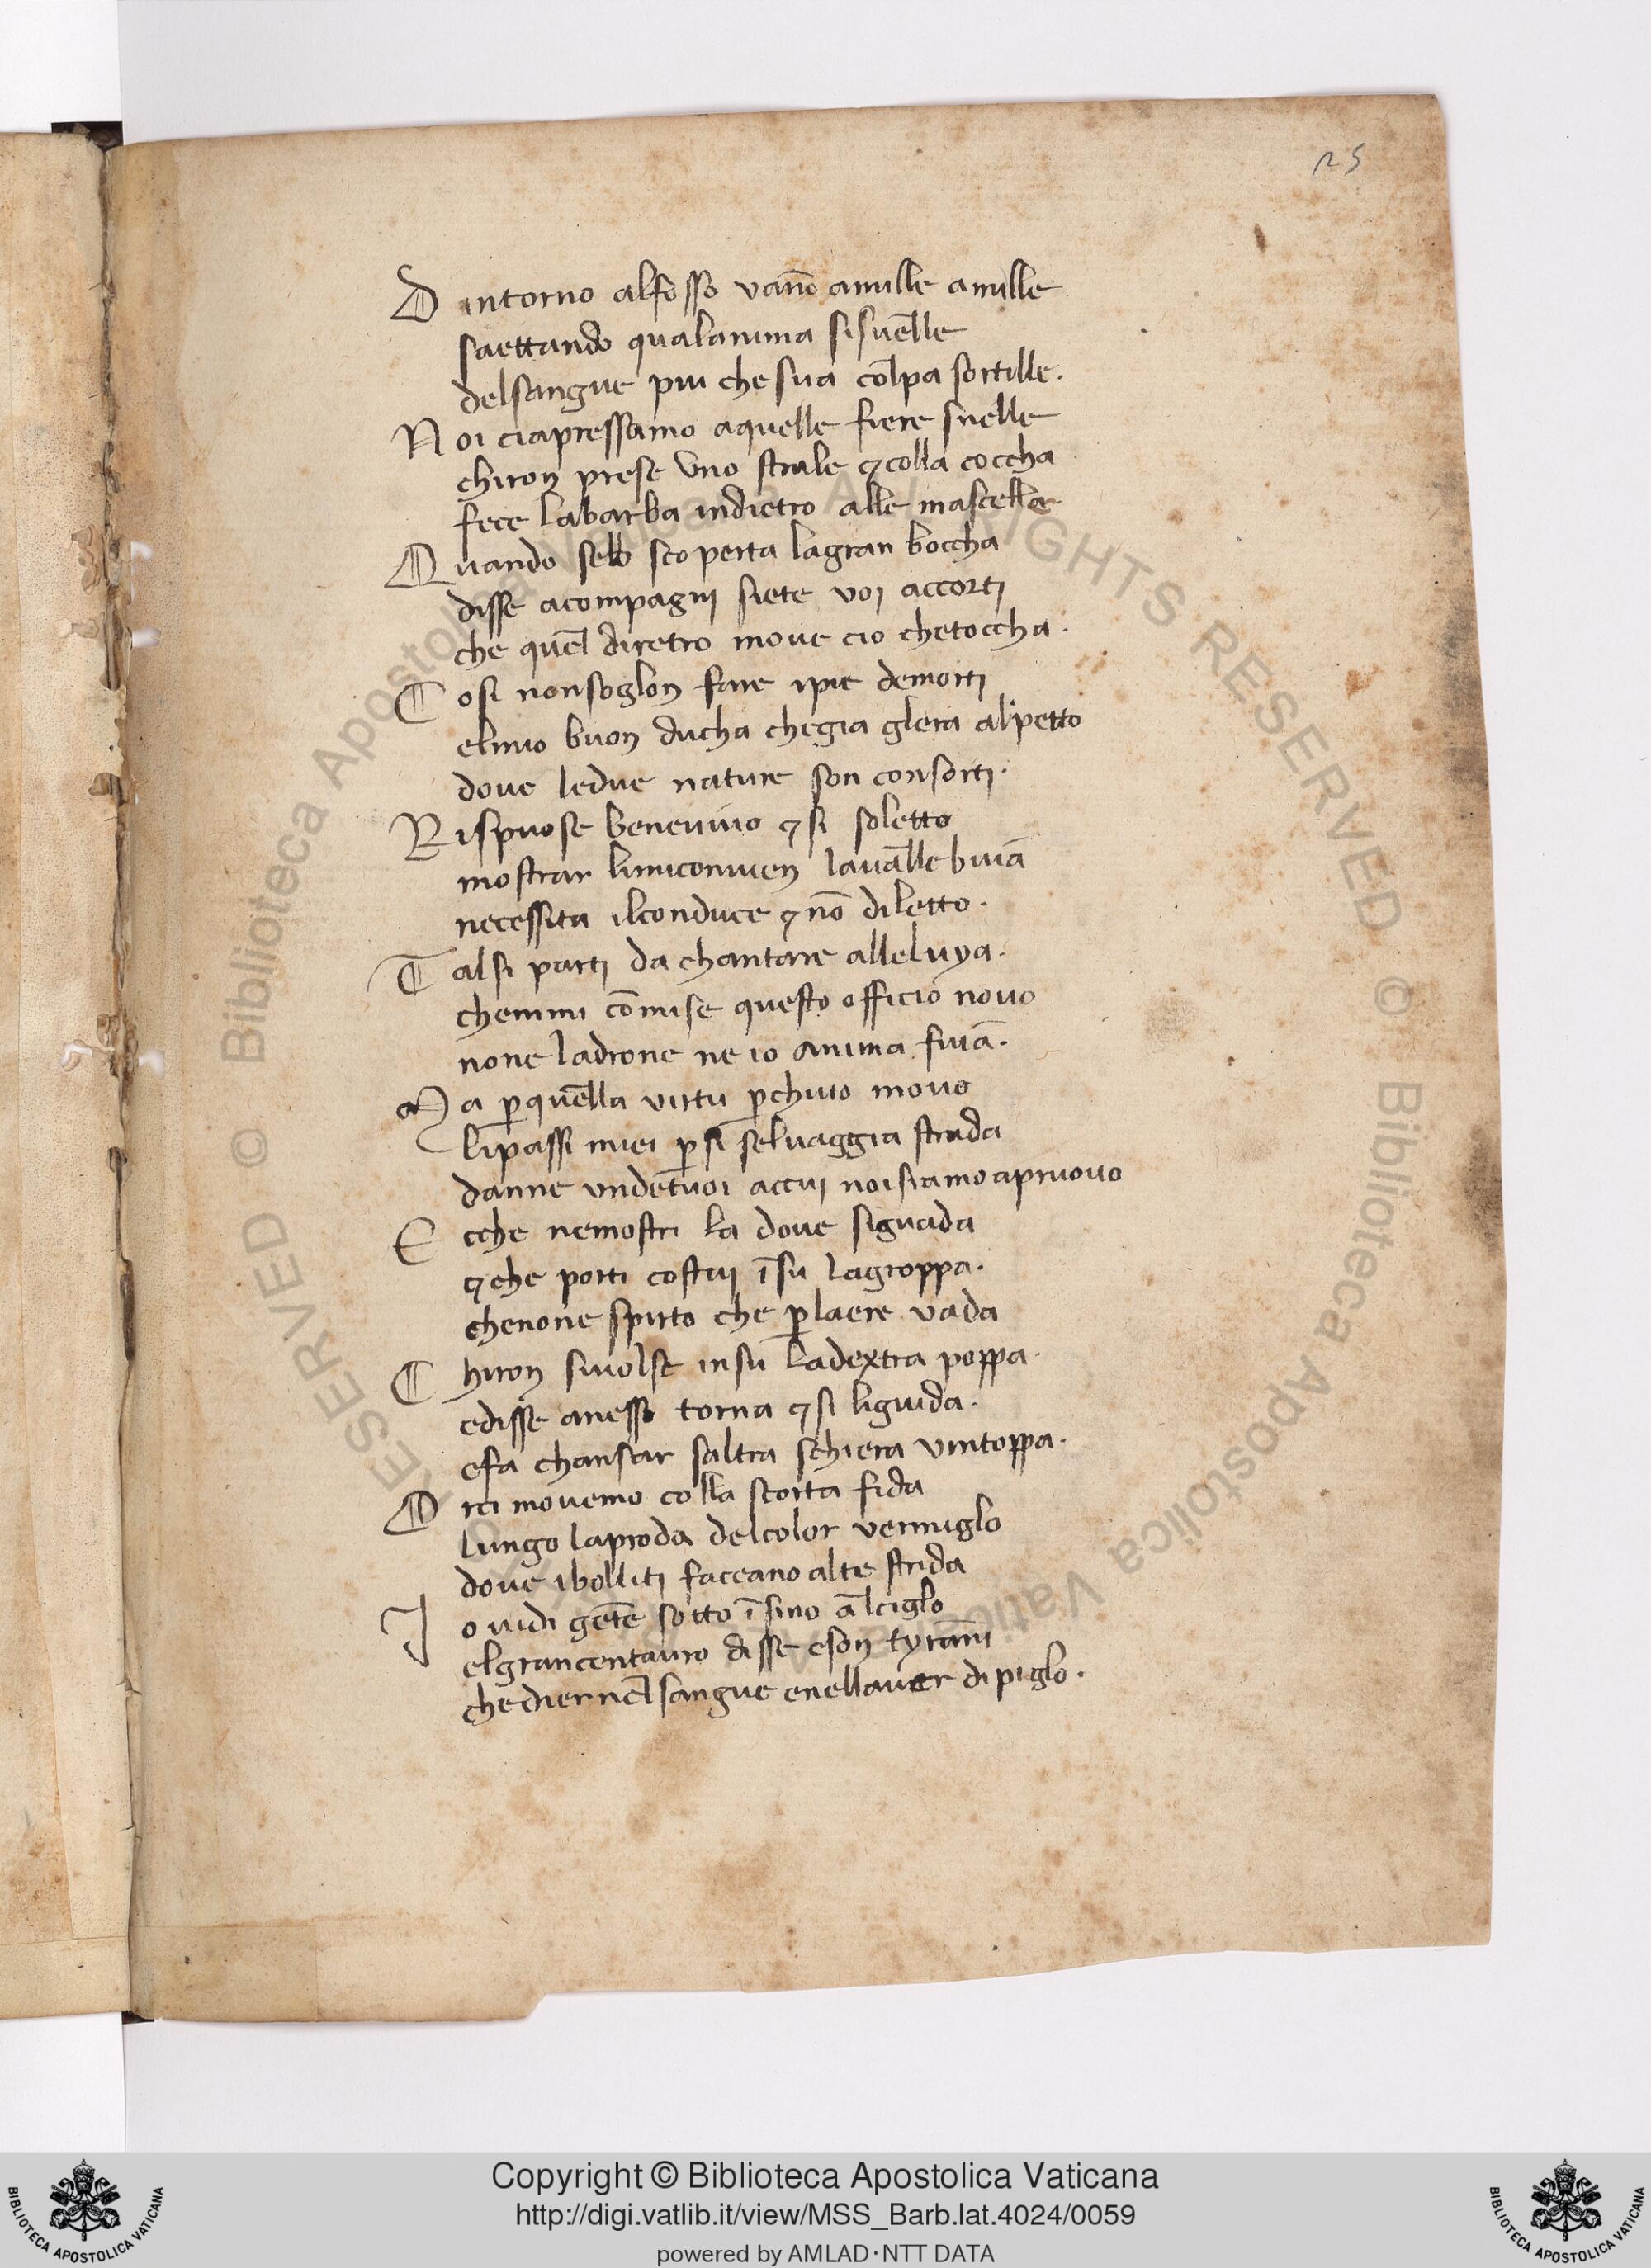 25
D intorno alfosso vano͞ amille amille
saettando qualanima sisue͞lle
delsangue piu che sua co͞lpa sortille.
N oi ciapressamo aquelle fiere snelle
chiron prese vno strale ⁊ colla coccha
fece labarba indietro alle mascelle
Q uando sebb scoperta lagran boccha
disse acompagni siete voi accorti
che que͞l diretro moue cio chetoccha.
C osi nonsoglon fare ipie demorti
elmio buon ducha chegia glera alpetto
doue ledue nature son consorti.
R ispuose beneuiuo ⁊ si soletto
mostrar limiconuien laua͞lle buia͞
necessita ilconduce ⁊ no͞ diletto.
T alsi parti da chantare alleluya.
chemmi co͞mise questo officio nouo
none ladrone ne io anima fuia͞.
M a ꝑ que͞lla virtu ꝑ chuio mouo
lipassi miei ꝑ si seluaggia strada
danne vnde͞tuoi accui noisiamo apruouo
E cche nemostri la doue siguada
⁊ che porti costui i͞su lagroppa.
chenone spirto che ꝑ laere vada
C hiron siuolse insu ladextra poppa.
edisse anesso torna ⁊ si liguida.
efa chansar saltra schiera vintoppa.
O rci mouemo colla scorta fida
lungo laproda delcolor vermiglo
doue ibolliti faceano alte strida
I o uidi ge͞te sotto i͞sino a͞lciglo
elgrancentauro disse eson tyra͞ni
chedier nel sangue enellauer dipiglo.
Copyright © Biblioteca Apostolica Vaticana
http://digi.vatlib.it/view/MSS_Barb.lat.4024/0059
powered by AMLAD·NTT DATA
BIBLIOTECA APOSTOLICA VATICANA
BIBLIOTECA APOSTOLICA VATICANA